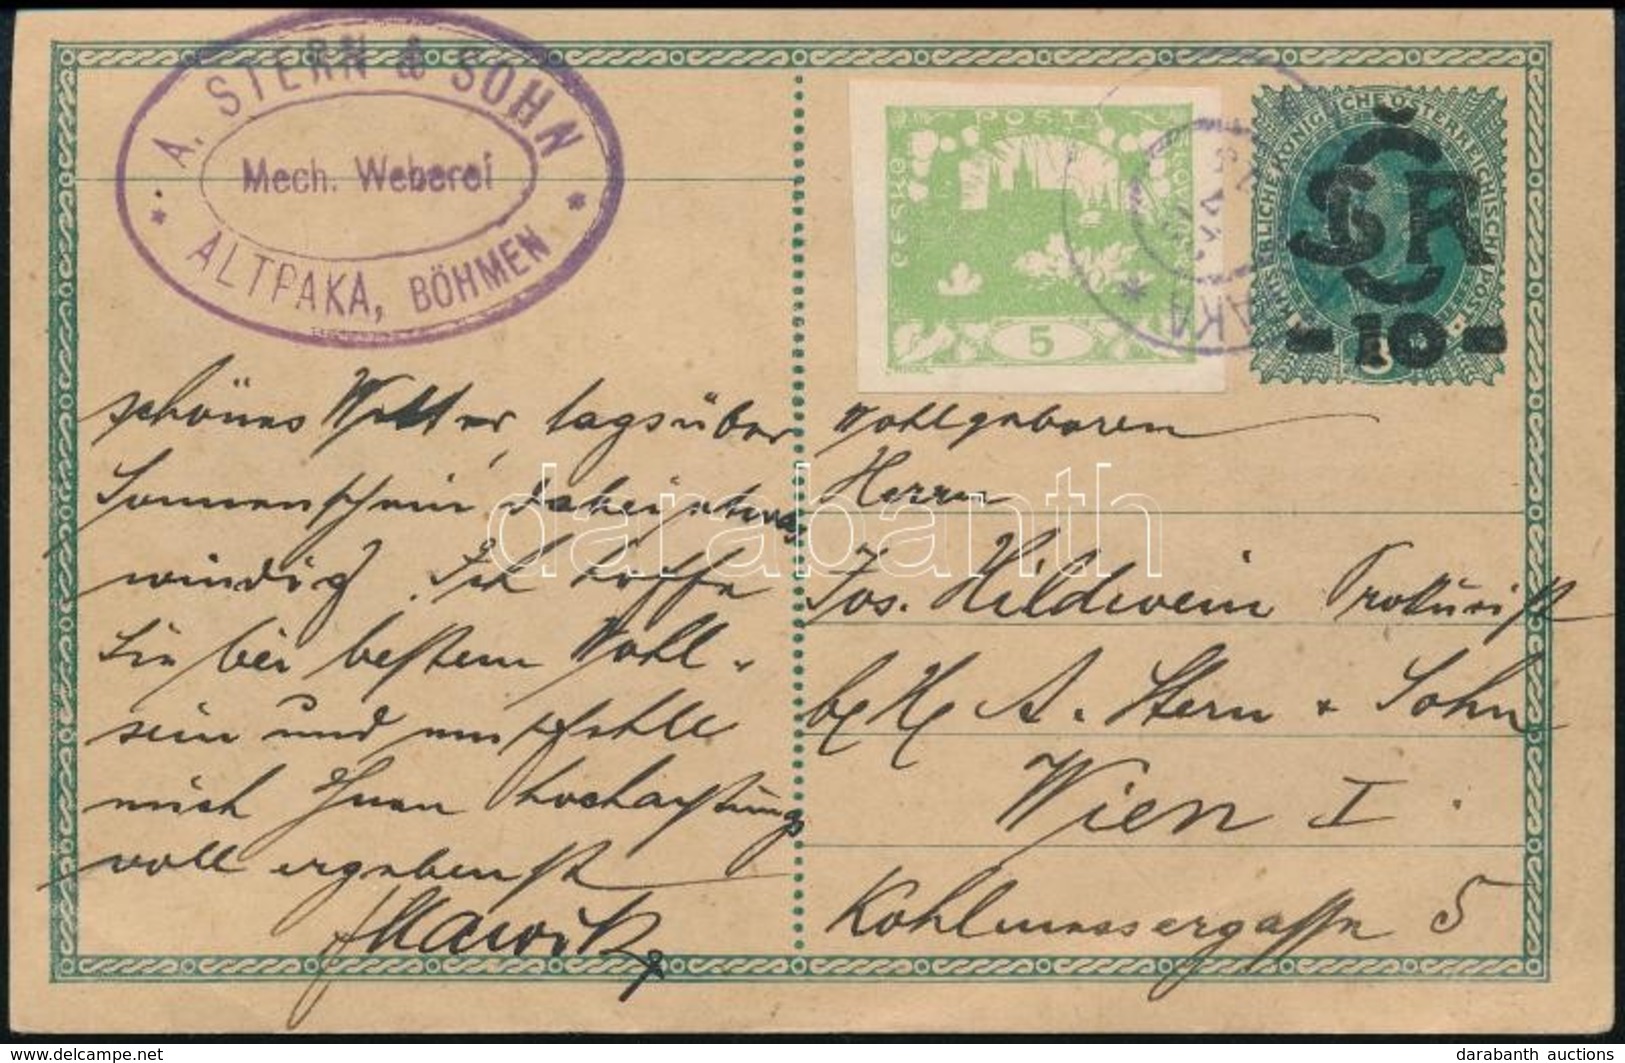 A. STERN & SOHN
Mech. Weberei
ALTPAKA, BÖHMEN
POSTA
ČESKO
SLOVENSKÁ
5
KAISERLICHE KÖNIGLICHE ÖSTERREICHISCHE POST
ČSR
-10-
8
AKA
schönes Wetter, tagsüber
Sonnenschein, dabei etwas
windig. Ich hoffe
Sie bei bestem Wohl-
sein und empfehle
mich Ihnen hochachtungs
voll ergebenst
Wohlgeboren
Herrn
Jos. Hildwein Prokurist
A. Stern & Sohn
Wien I.
Kohlmessergasse 5
darabanth
darabanth.com
darabanth auctions